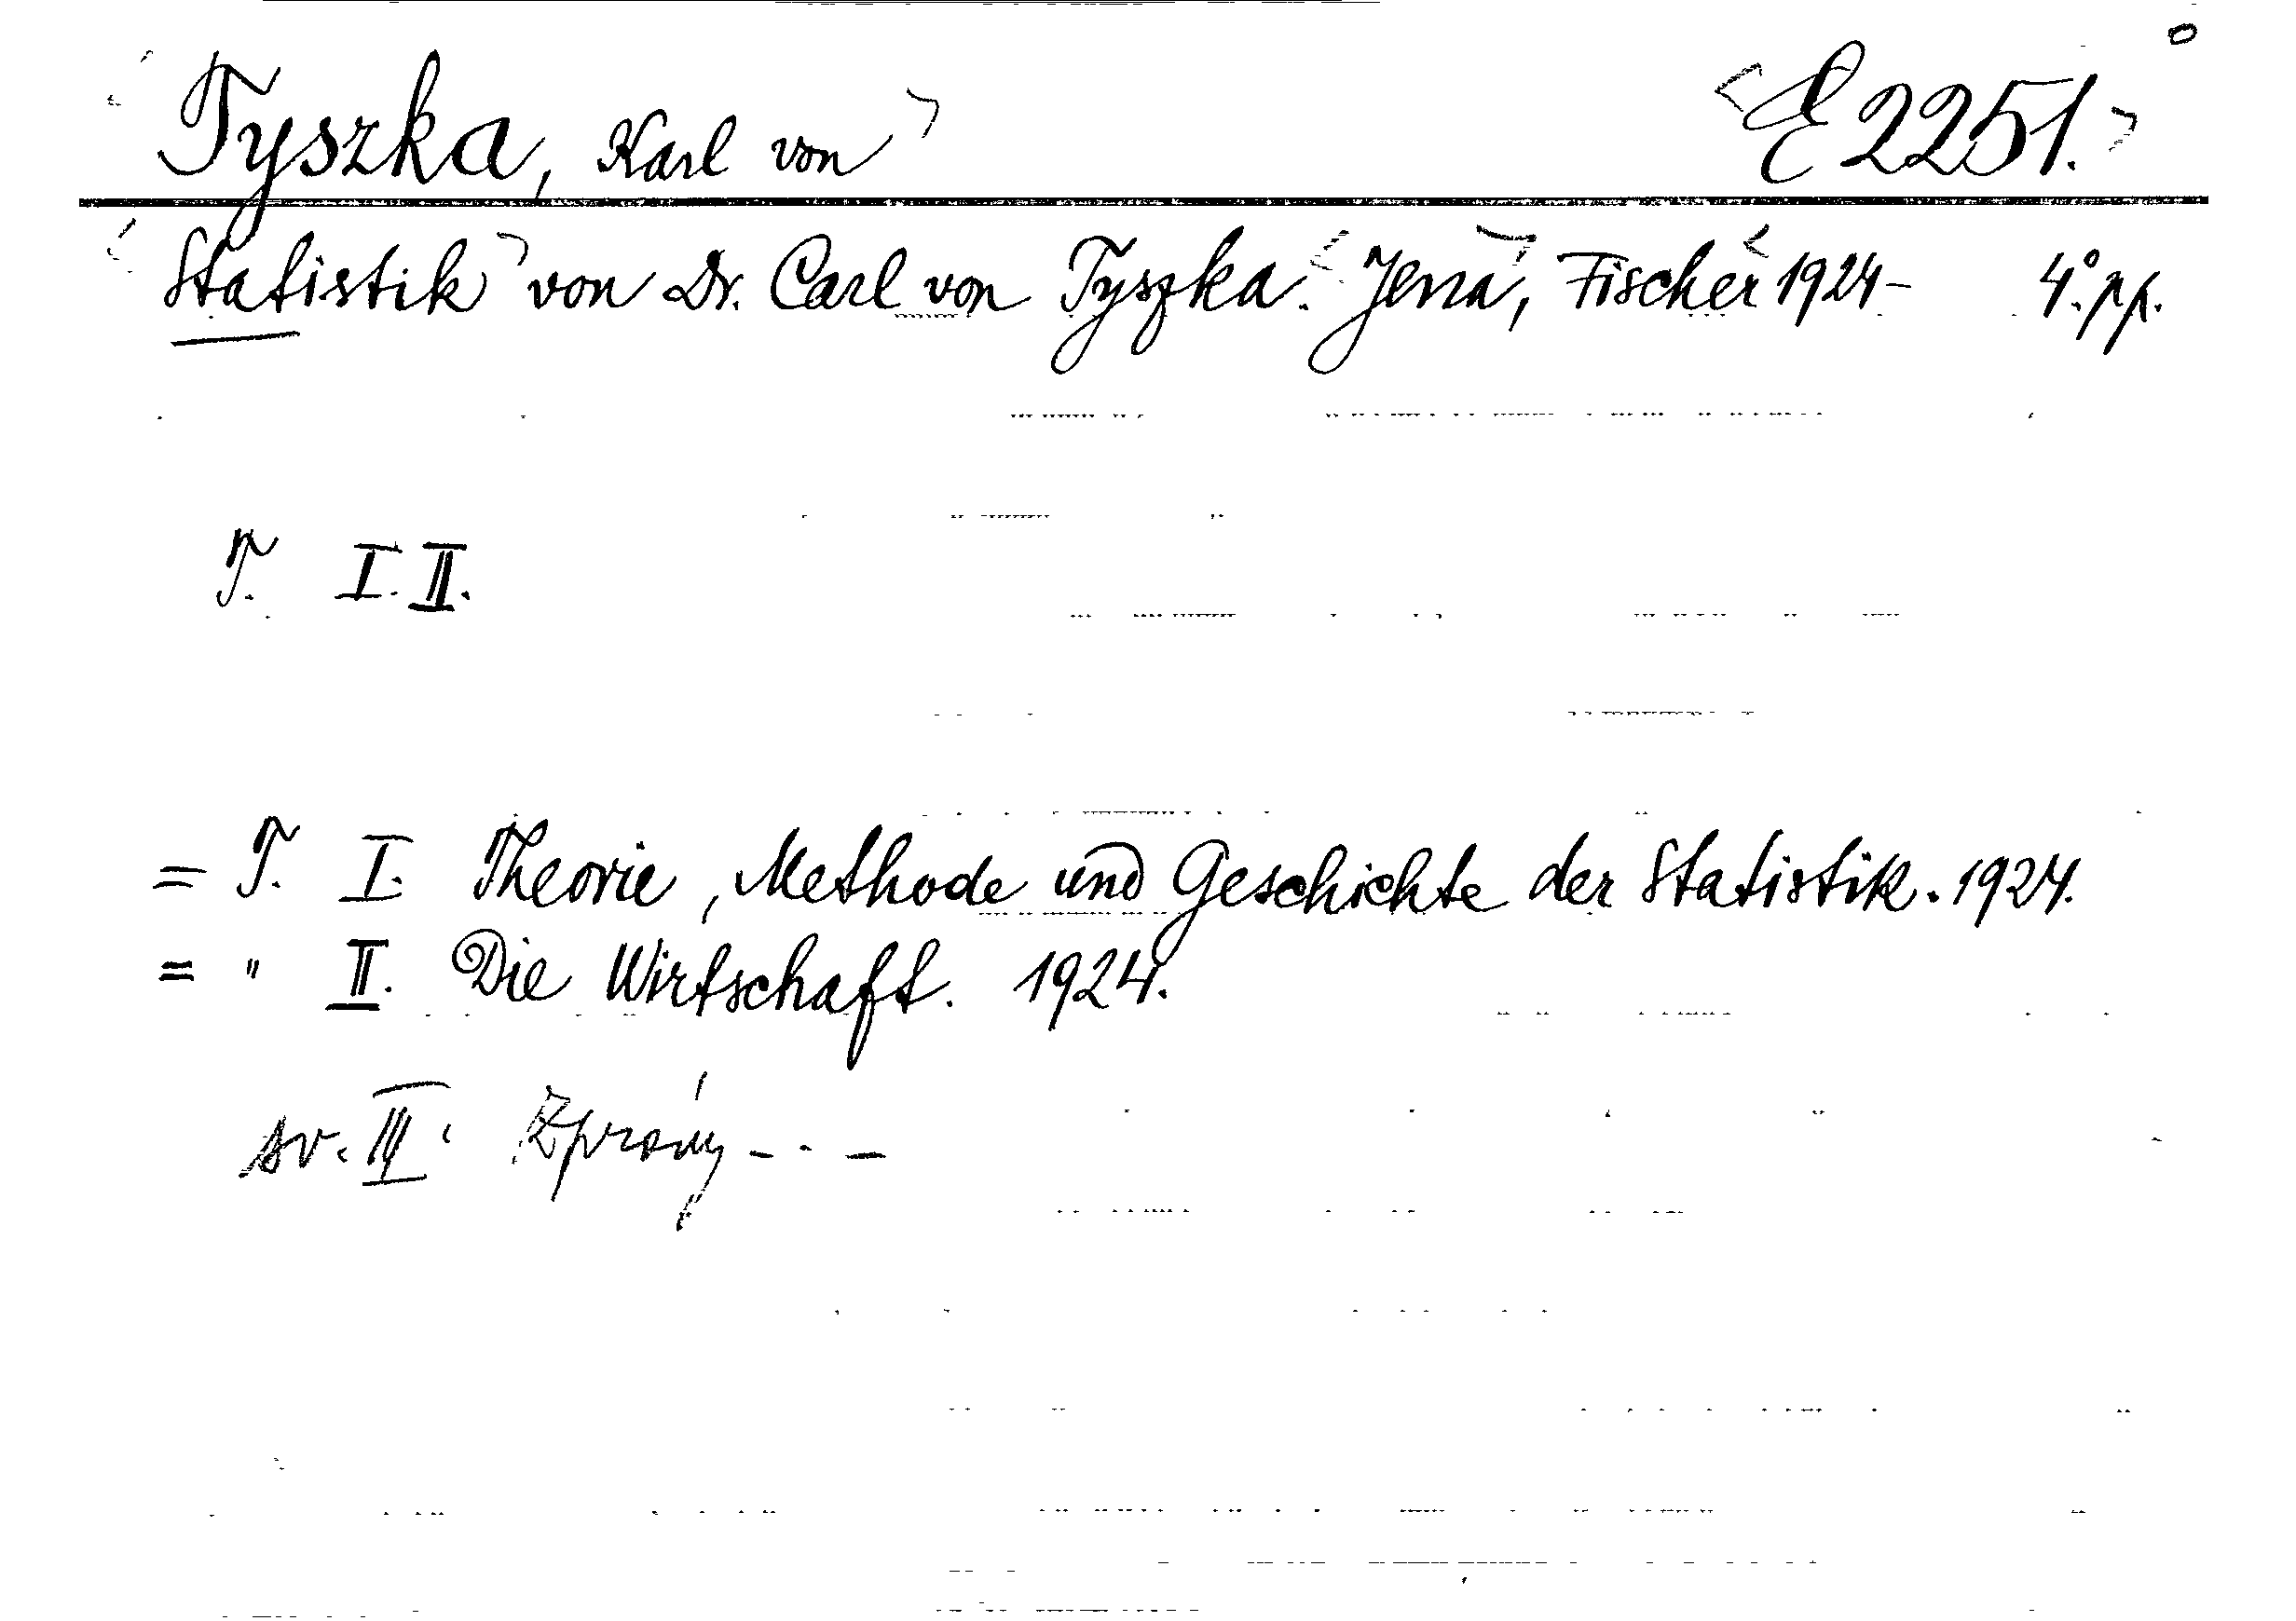 Tyszka, Karl von E 2251.
Statistik von Dr. Carl von Tyszka. Jena, Fischer 1924- 4°. pp.
T. I. II.
= T. I. Theorie, Methode und Geschichte der Statistik. 1924.
= " II. Die Wirtschaft. 1924.
sv. III